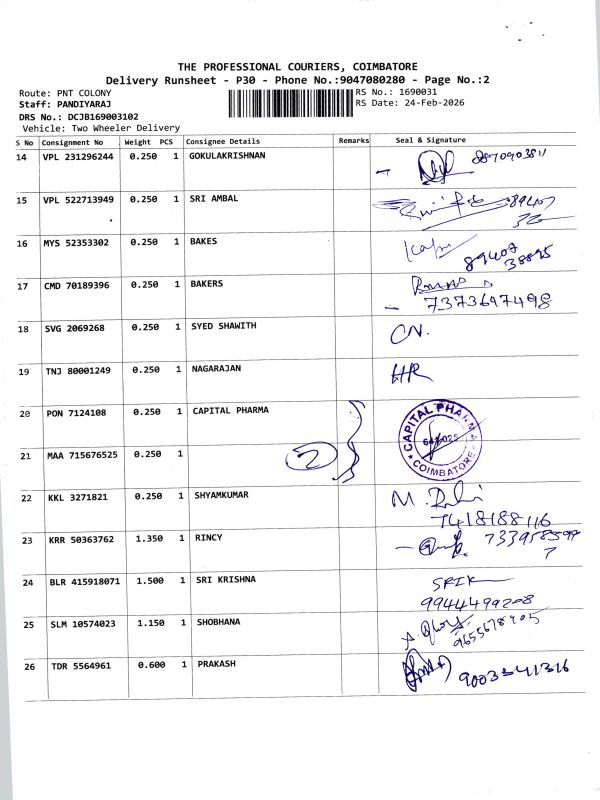 THE PROFESSIONAL COURIERS, COIMBATORE
Delivery Runsheet - P30 - Phone No.:9047080280 - Page No.:2
Route: PNT COLONY
RS No.: 1690031
Staff: PANDIYARAJ
RS Date: 24-Feb-2026
DRS No.: DCJB169003102
Vehicle: Two Wheeler Delivery
S No Consignment No Weight PCS Consignee Details Remarks Seal & Signature
14 VPL 231296244 0.250 1 GOKULAKRISHNAN
15 VPL 522713949 0.250 1 SRI AMBAL
16 MYS 52353302 0.250 1 BAKES
89407
38895
17 CMD 70189396 0.250 1 BAKERS
7373697498
18 SVG 2069268 0.250 1 SYED SHAWITH CN.
19 TNJ 80001249 0.250 1 NAGARAJAN
20 PON 7124108 0.250 1 CAPITAL PHARMA
CAPITAL PHARMA
COIMBATORE
21 MAA 715676525 0.250 1 2
22 KKL 3271821 0.250 1 SHYAMKUMAR
7418188116
23 KRR 50363762 1.350 1 RINCY
24 BLR 415918071 1.500 1 SRI KRISHNA
9944499208
25 SLM 10574023 1.150 1 SHOBHANA
9655678905
26 TDR 5564961 0.600 1 PRAKASH 9003341316